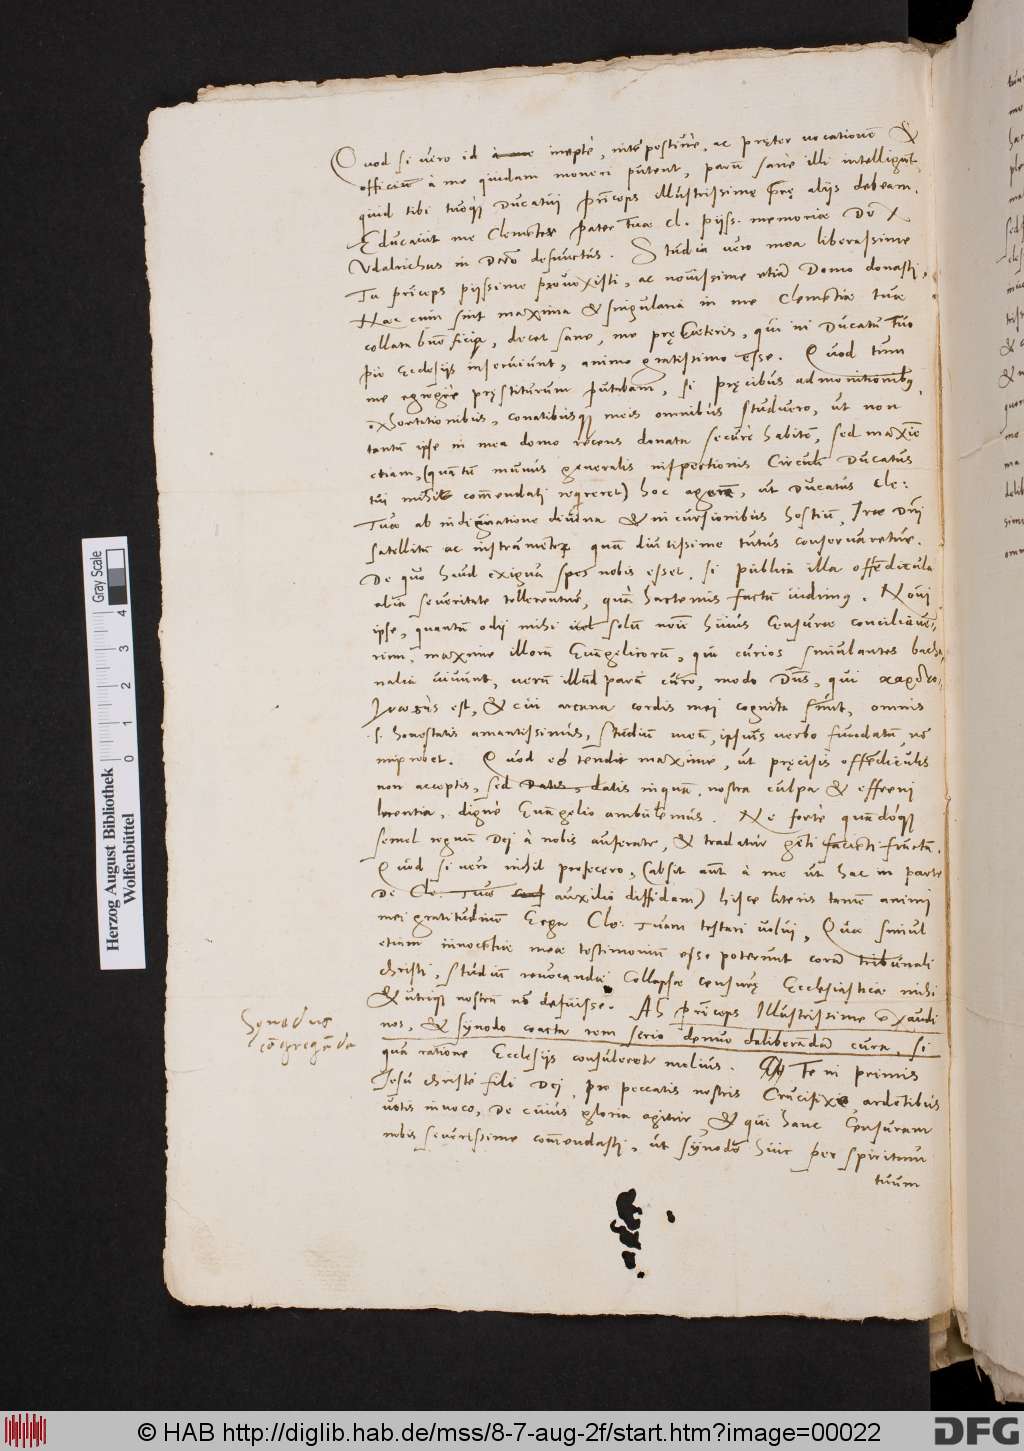 Quod si vero id ineptè, intēpestivè, ac pręter vocationē &
officiū à me quidam moneri putent, parū sanè illi intelligūt,
quid tibi tuoq̃ Ducatui prīceps illustrissimę prę alijs debeam.
Educavit me Clemētiæ pater tuæ cl. pijss. memoriæ Dux
Vdalrichus in Dn̄o defunctus. Studia vero mea liberalissime
Tu prīceps pijssime provexisti, ac novissime etiā Domo donasti,
Hæc cum sint maxima & singularia in me Clemētiæ tuæ
collata bn̄ficia, decet sane, me prę cæteris, qui in Ducatu tuo
pie Ecclesijs inserviunt, animo gratissimo esse. Quod tum
me egregiè pręstiturum putabam, si pręcibus admonitionibꝰ,
exhortationibus, conatibusq̃ meis omnibus studuero, ut non
tantū ipse in mea domo recens donata securè habitē, sed maxīe
etiam, (quantū munus generalis inspectionis Circuli Ducatus
tui mihi com̄endati req̄reret) hoc agerē, ut Ducatus Cle:
Tuæ ab indignatione divina & incursionibus hostiū, Iræ Dn̄i
satellitū ac instrumentorū quā diutissime tutus conservaretur.
De quo haud exigua spes nobis esset, si publica illa offēdicula
alia severitate tollerentur, quā hactenus factū vidimꝰ. Novi
ipse, quantū odij mihi vel solū nomē huius Censuræ conciliave-
rim, maxime illorū Evāgelicorū, qui curios simulantes bacha-
nalia vivunt, verū illud parū curo, modo Dn̄s, qui καρδιο-
γνωστὴς est, & cui arcana cordis mei cognita sunt, omnis
honestatis amantissimus, studium meū, ipsius verbo fundatū, nō
improbet. Quod eò tendit maxime, ut pręcisis offēdiculis
non acceptis, sed datis, datis inquā, nostra culpa & effreni
licentia, dignè Evāgelio ambulemus. Ne fortè quādóq̃
semel regnū Dei à nobis auferatur, & tradatur gēti faciēti fructū.
Quòd si verò nihil profecero, (absit aūt à me ut hac in parte
de Cle: Tuæ auxilio diffidam) hisce literis tamē animi
mei gratitudinē Erga Cle: Tuam testari volui, Quæ simul
etiam innocētiæ meæ testimoniū esse poterunt corā tribunali
Christi, studiū revocandæ Collapsæ censuræ Ecclesiasticæ mihi
& utrique nostrū nō defuisse. Ah prīceps Illustrissime exaudi
nos, & synodo coacta rem serio denuo deliberandā cura, si
qua ratione Ecclesijs consuleretur melius. Te in primis
Jesu Christe fili Dei, pro peccatis nostris Crucifixe, ardētibus
votis invoco, de cuius gloria agitur, & qui hanc Censuram
nobis severissime com̄endasti, ut synodo huic per spiritum
tuum
Synodus
cōgregāda
Herzog August Bibliothek
Wolfenbüttel
Gray Scale
0 1 2 3 4
© HAB http://diglib.hab.de/mss/8-7-aug-2f/start.htm?image=00022
DFG